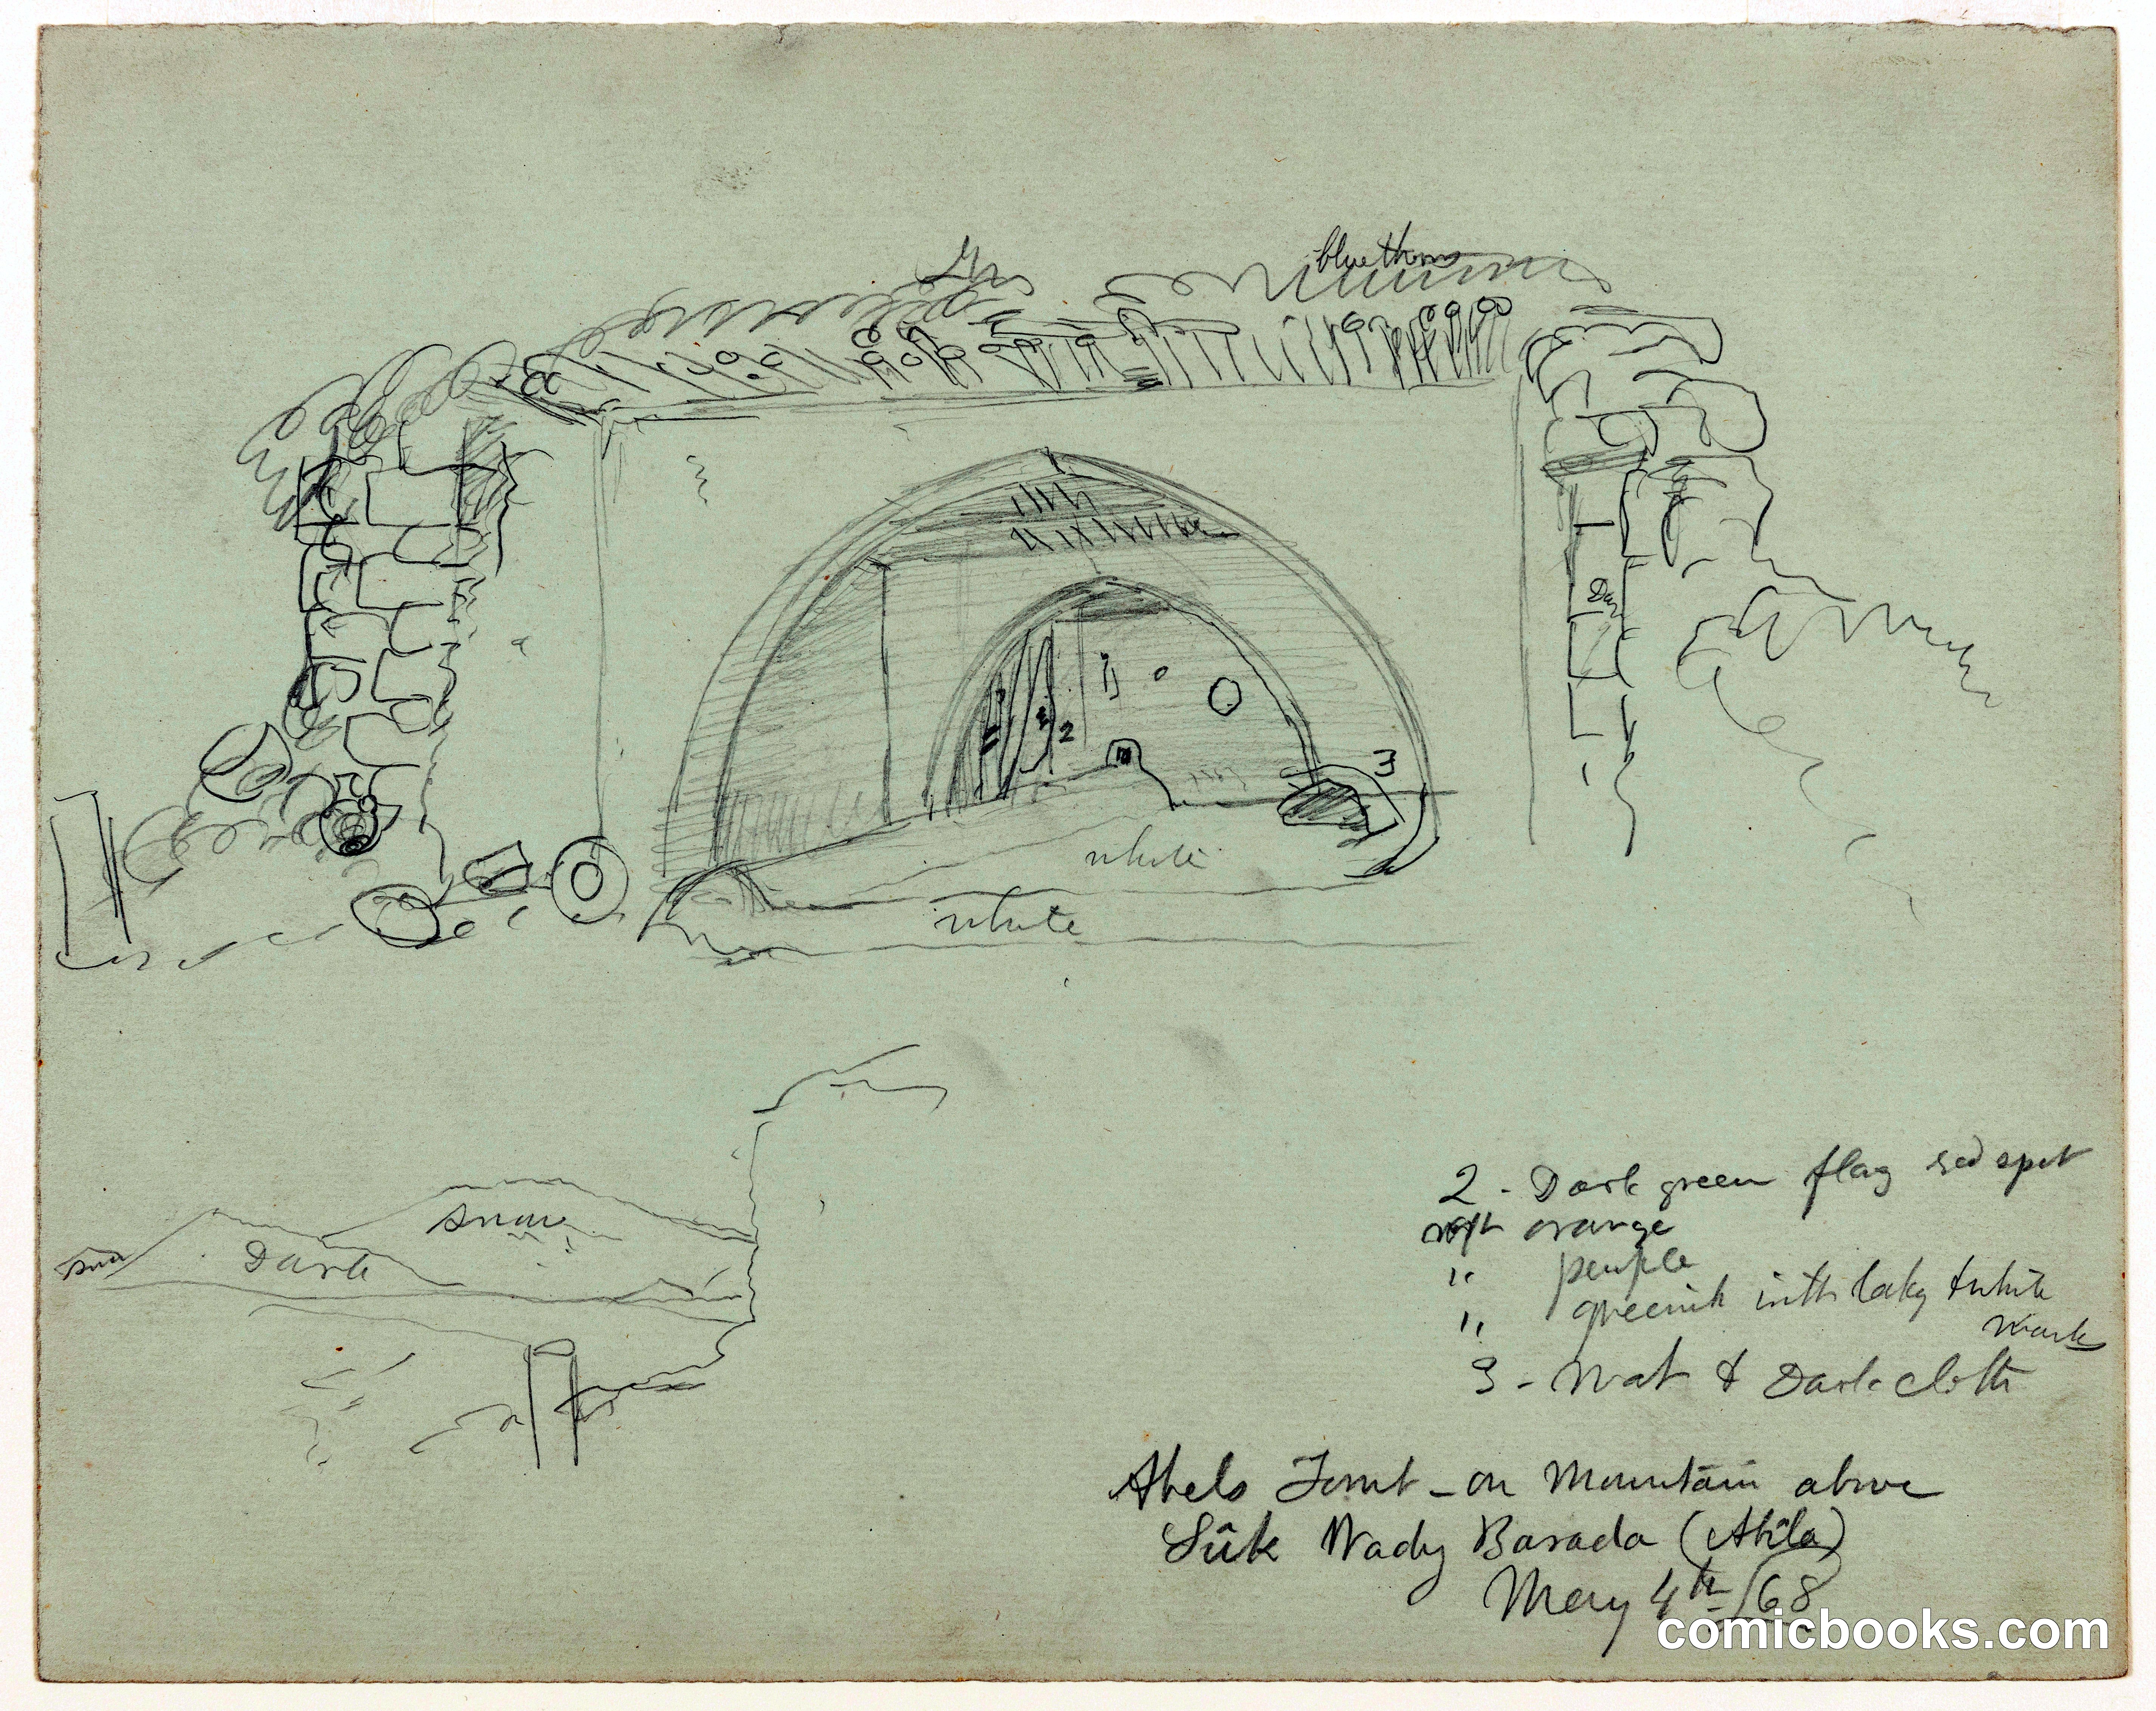 blue thorns
Dar
2
3
white
white
snow
Dark
2 - Dark green flag red spot
orange
" purple
" greenish with laky & white
mark
3 - Mat & Dark cloth
Abels Tomb - on Mountain above
Sûk Wady Barada (Abila)
May 4th /68
comicbooks.com